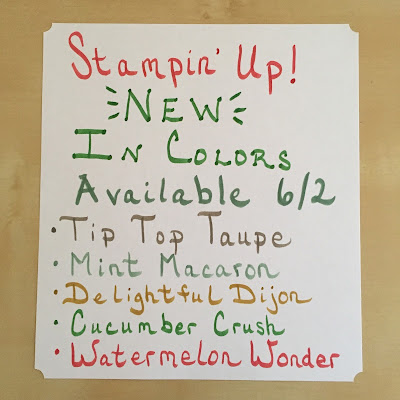 Stampin' Up!
NEW
In Colors
Available 6/2
• Tip Top Taupe
• Mint Macaron
• Delightful Dijon
• Cucumber Crush
• Watermelon Wonder